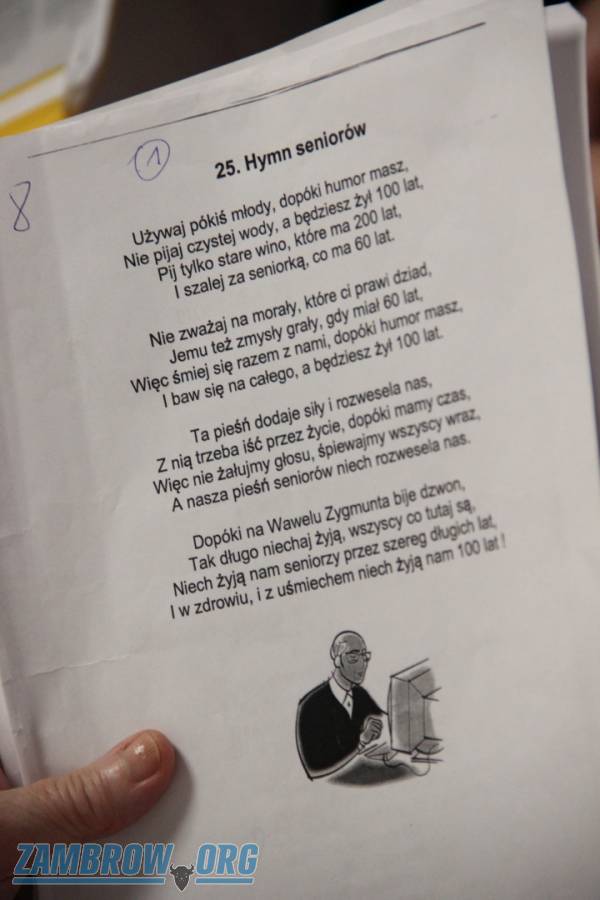 8
1
25. Hymn seniorów
Używaj pókiś młody, dopóki humor masz,
Nie pijaj czystej wody, a będziesz żył 100 lat,
Pij tylko stare wino, które ma 200 lat,
I szalej za seniorką, co ma 60 lat.
Nie zważaj na morały, które ci prawi dziad,
Jemu też zmysły grały, gdy miał 60 lat,
Więc śmiej się razem z nami, dopóki humor masz,
I baw się na całego, a będziesz żył 100 lat.
Ta pieśń dodaje siły i rozwesela nas,
Z nią trzeba iść przez życie, dopóki mamy czas,
Więc nie żałujmy głosu, śpiewajmy wszyscy wraz,
A nasza pieśń seniorów niech rozwesela nas.
Dopóki na Wawelu Zygmunta bije dzwon,
Tak długo niechaj żyją, wszyscy co tutaj są,
Niech żyją nam seniorzy przez szereg długich lat,
I w zdrowiu, i z uśmiechem niech żyją nam 100 lat !
ZAMBROW.ORG